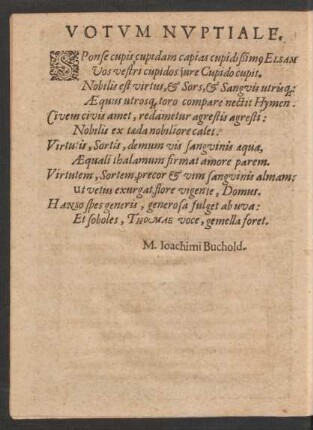 VOTVM NVPTIALE.
SPonse cupis cupidam capias cupidissimꝰ ELSAM
Vos vestri cupidos iure Cupido cupit.
Nobilis est virtus, & Sors, & Sanguis utriq;:
Æquus utrosq; toro compare nectit Hymen.
Civem civis amet, redametur agrestis agresti:
Nobilis ex tæda nobiliore calet.
Virtutis, Sortis, demum vis sanguinis æqua,
Æquali thalamum firmat amore parem.
Virtutem, Sortem, precor & vim sanguinis almam:
Ut vetus exurgat, flore vigente, Domus.
HANSO spes generis, generosa fulget ab uva:
Et soboles, THOMAE voce, gemella foret.
M. Ioachimi Buchold.